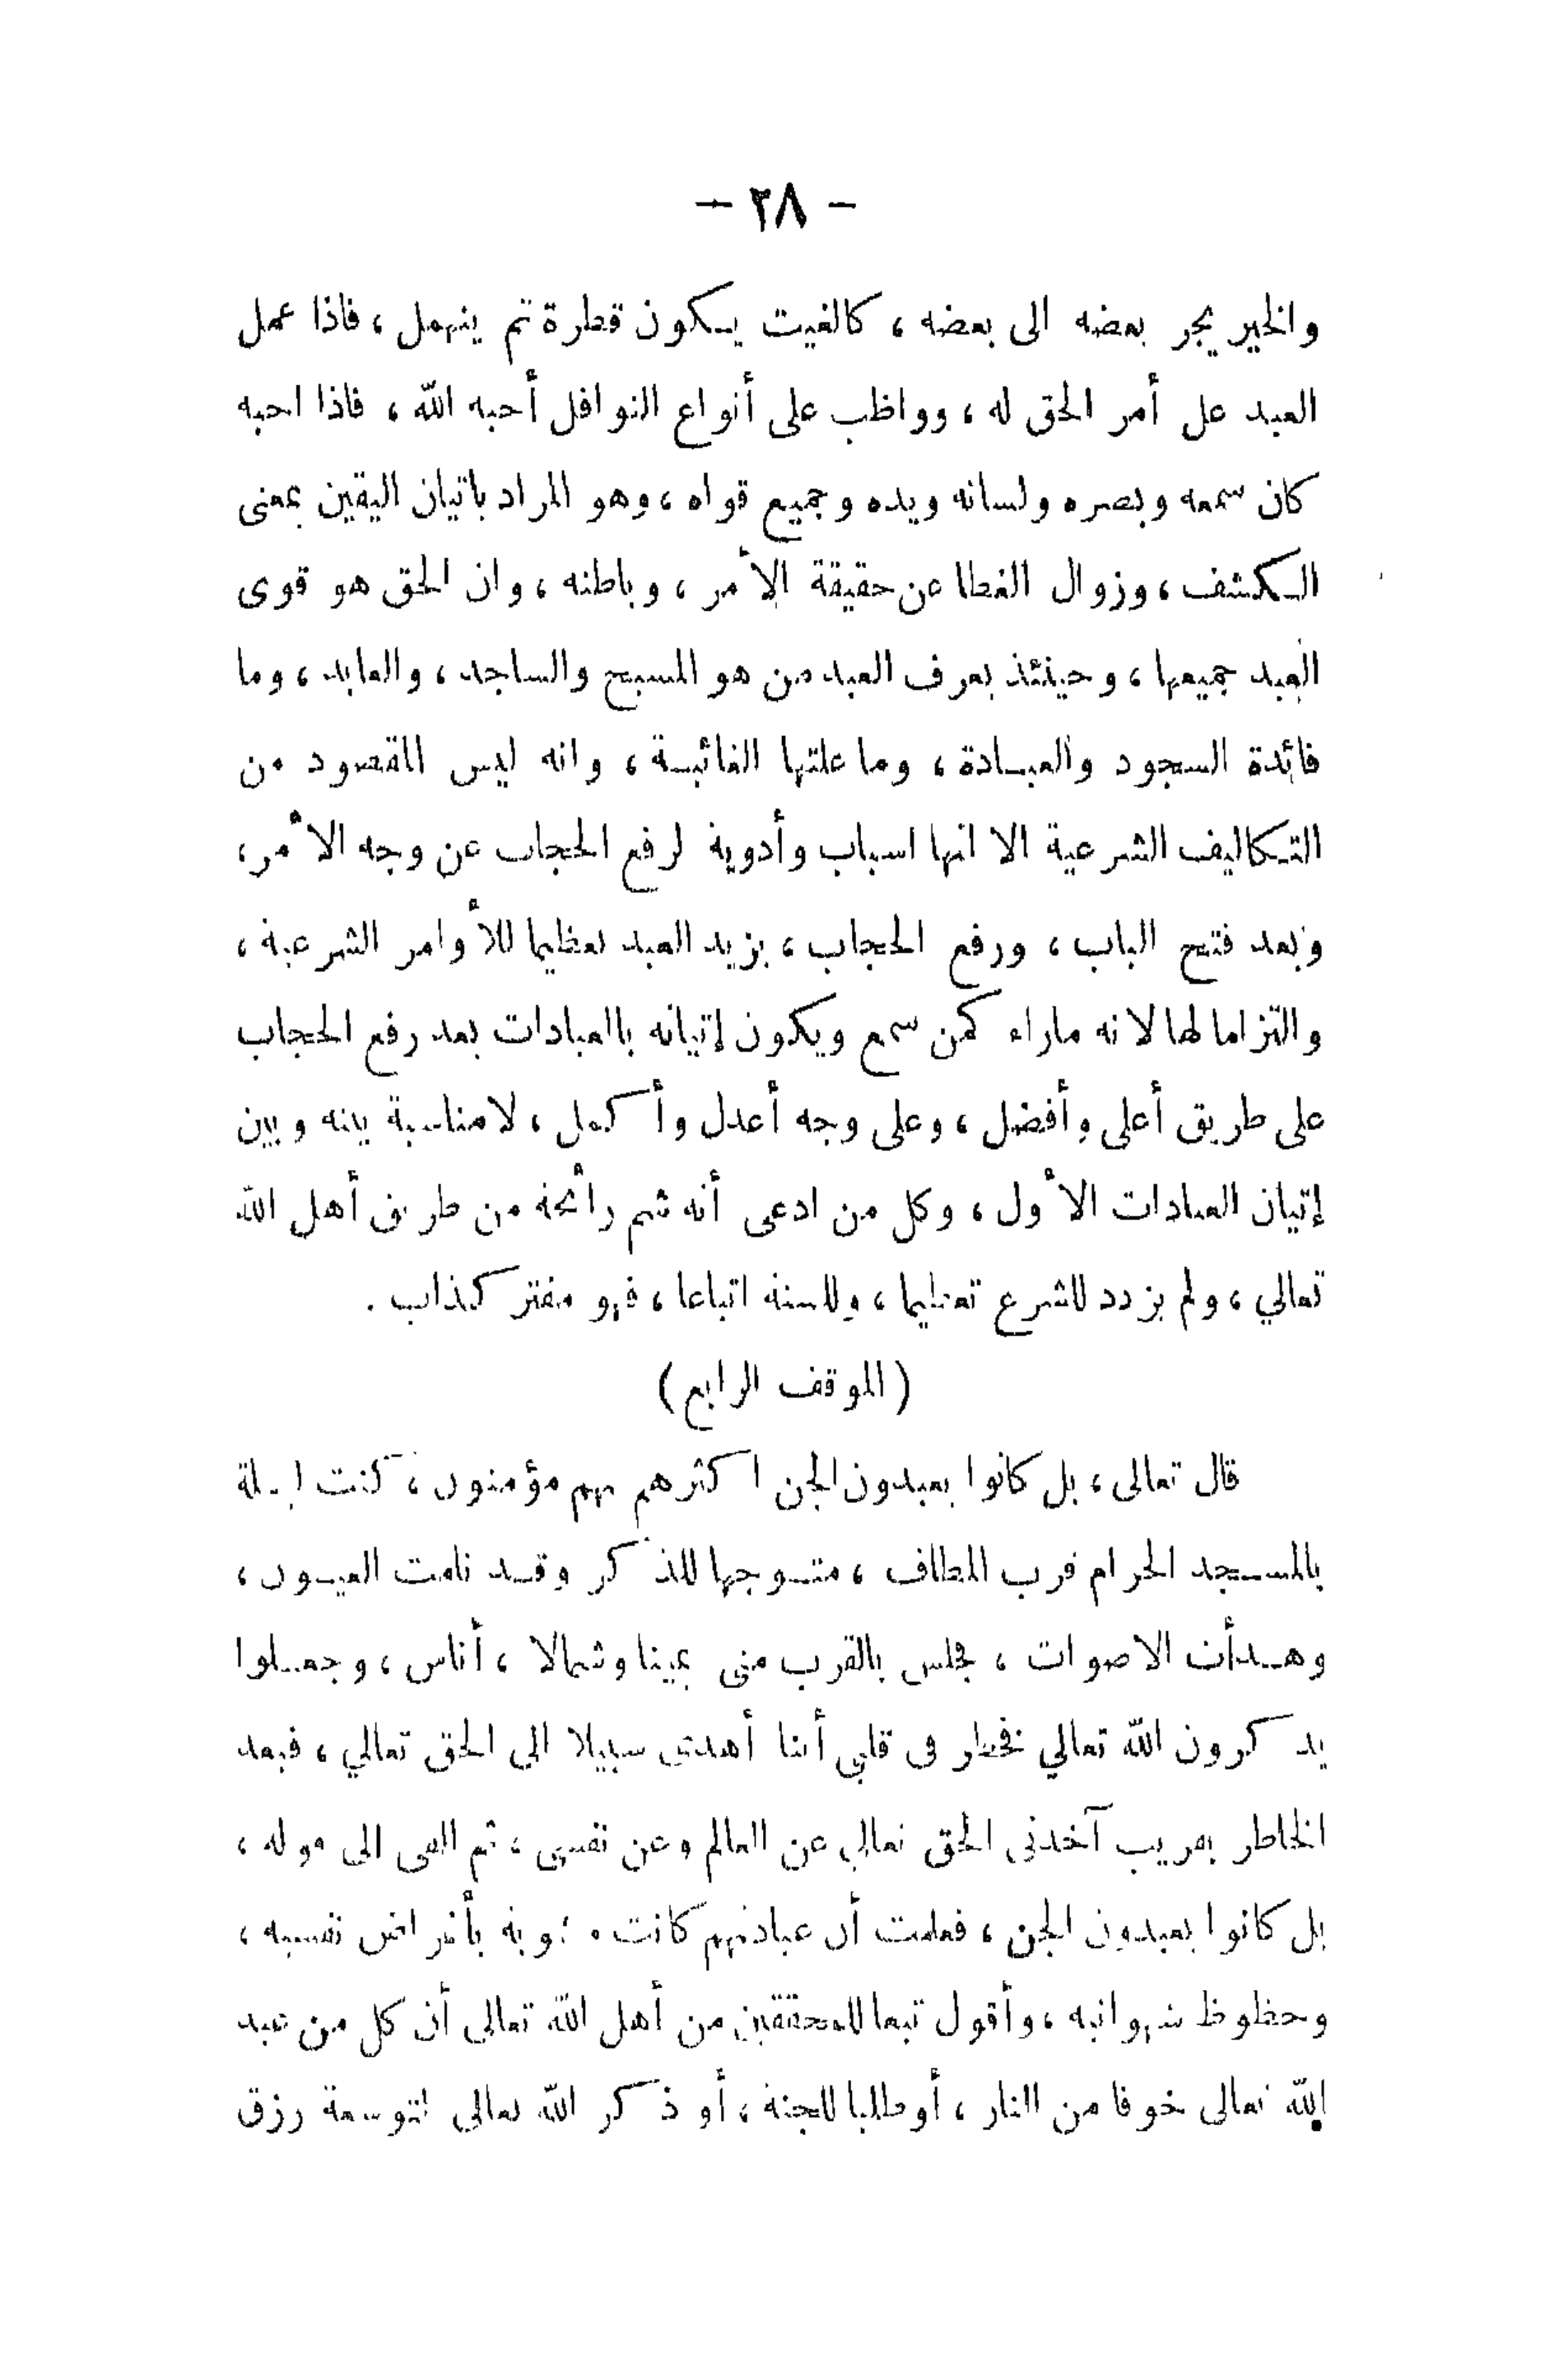 — ٢٨ —
والخير يجر بعضه الى بعضه ، كالغيت يكون قطرة ثم ينهمل ، فاذا عمل
العبد عل أمر الحق له ، وواظب على أنواع النوافل أحبه الله ، فاذا احبه
كان سمعه وبصره ولسانه ويده وجميع قواه ، وهو المراد باتيان اليقين بمعنى
الكشف ، وزوال الغطا عن حقيقة الأمر ، وباطنه ، وان الحق هو قوى
العبد جميعها ، وحينئذ يعرف العبد من هو المسبح والساجد ، والعابد ، وما
فائدة السجود والعبادة ، وما علتها الغائية ، وانه ليس المقصود من
التكاليف الشرعية الا انها اسباب وأدوية لرفع الحجاب عن وجه الأمر ،
وبعد فتح الباب ، ورفع الحجاب ، يزيد العبد تعظيما للأوامر الشرعية ،
والتزاما لها لانه ماراء كمن سمع ويكون إتيانه بالعبادات بعد رفع الحجاب
على طريق أعلى وأفضل ، وعلى وجه أعدل وأكمل ، لامناسبة بينه وبين
إتيان العبادات الأول ، وكل من ادعى أنه شم رائحة من طريق أهل الله
تعالي ، ولم يزدد للشرع تعظيما ، وللسنة اتباعا ، فهو مفتر كذاب .
( الموقف الرابع )
قال تعالى ، بل كانوا يعبدون الجن اكثرهم بهم مؤمنون ، كنت ليلة
بالمسجد الحرام قرب المطاف ، متوجها للذكر وقد نامت العيون ،
وهدأت الاصوات ، فجلس بالقرب منى يمينا وشمالا ، أناس ، وجعلوا
يذكرون الله تعالي فخطر فى قلبي أينا أهدى سبيلا الى الحق تعالي ، فبعد
الخاطر بقريب آخذنى الحق تعالى عن العالم وعن نفسى ، ثم القى الى قوله ،
بل كانوا يعبدون الجن ، فعلمت أن عبادتهم كانت بأغراض نفسيه ،
وحظوظ شهوانيه ، وأقول تبعا للمحققين من أهل الله تعالى أن كل من عبد
الله تعالى خوفا من النار ، أو طلبا للجنة ، أو ذكر الله تعالى لتوسعة رزق